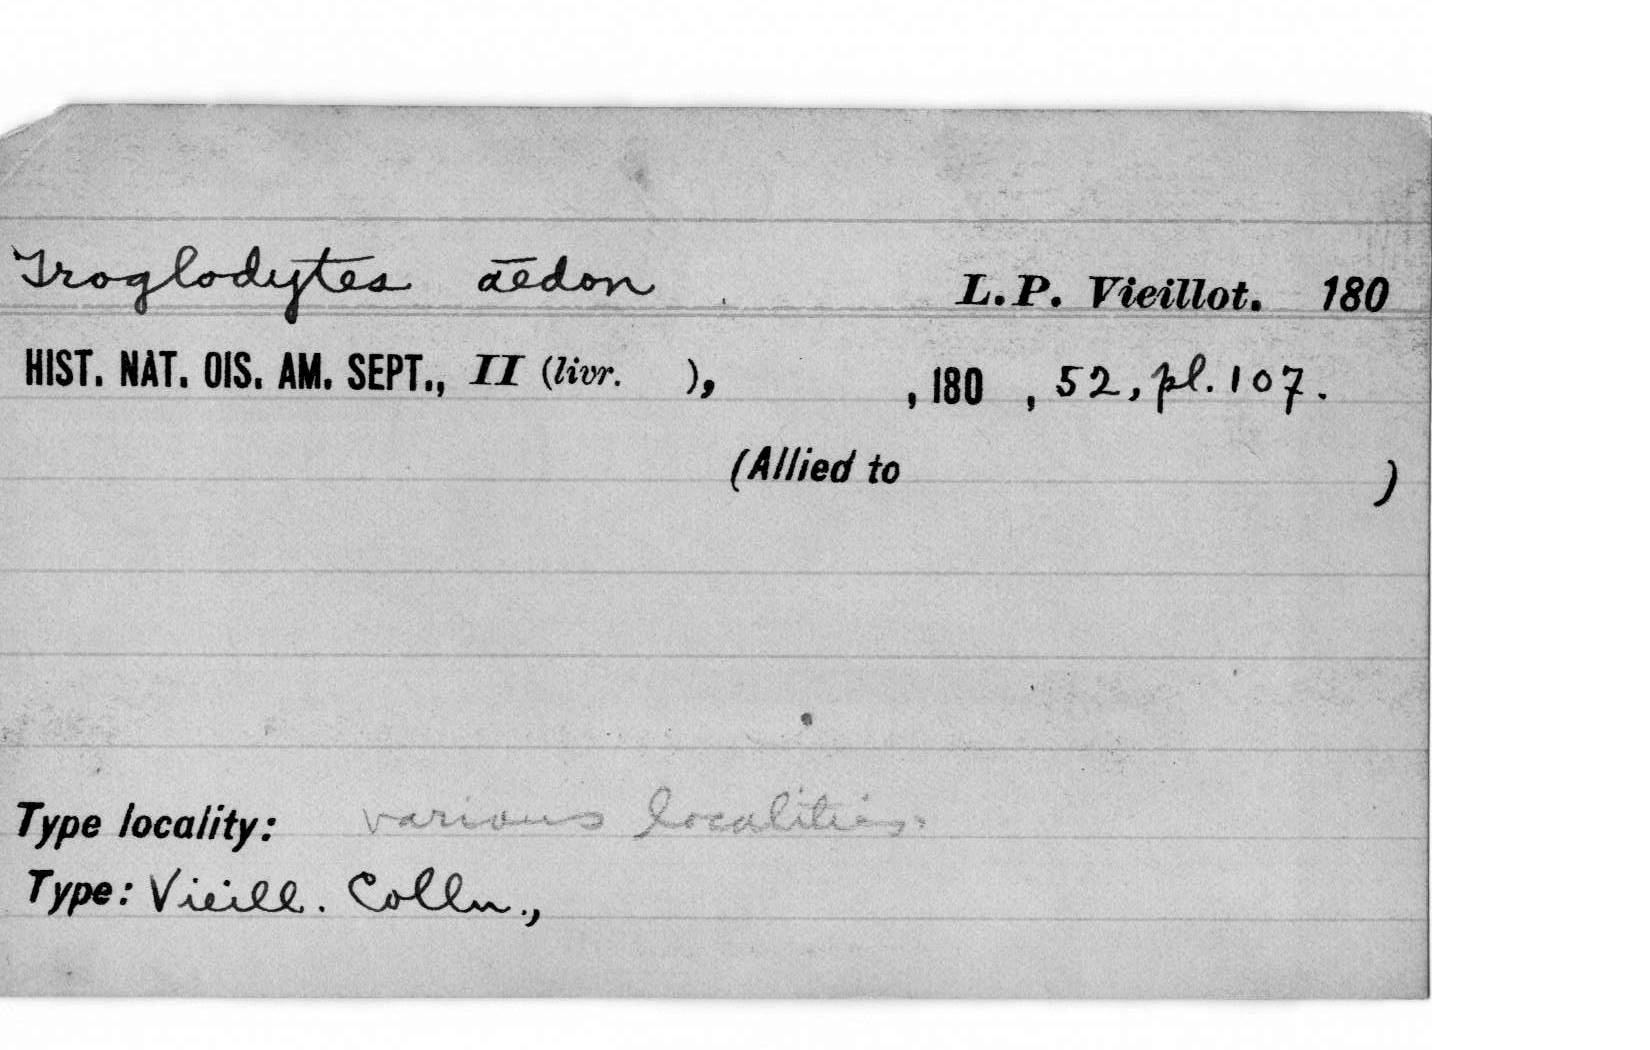 Troglodytes āēdon L.P. Vieillot. 180
HIST. NAT. OIS. AM. SEPT., II (livr. ), , 180 , 52, pl. 107.
(Allied to )
Type locality: various localities.
Type: Vieill. Colln.,